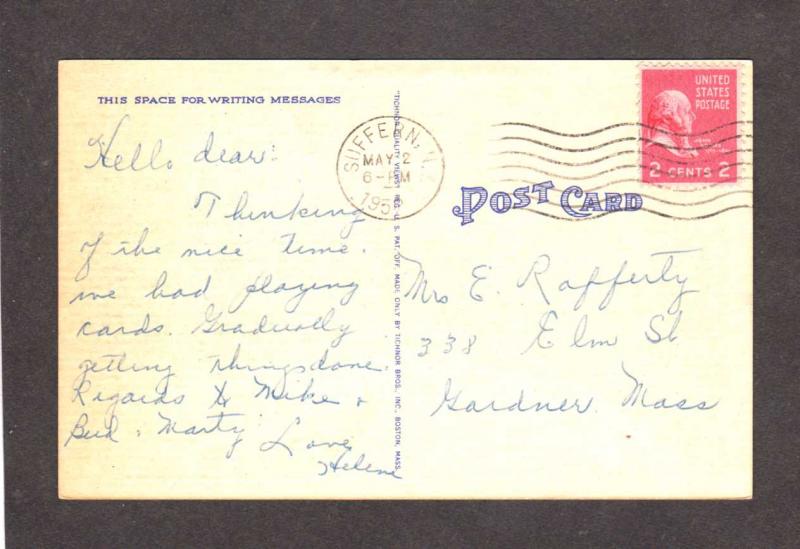 THIS SPACE FOR WRITING MESSAGES
Hello dear:
Thinking
of the nice time
we had playing
cards. Gradually
getting things done.
Regards to Mike +
Bud. Marty
Love
Helene
"TICHNOR QUALITY VIEWS" REG. U. S. PAT. OFF. MADE ONLY BY TICHNOR BROS. INC., BOSTON, MASS.
SUFFERN, N.Y.
MAY 2
6-PM
UNITED
STATES
POSTAGE
2 CENTS 2
POST CARD
Mrs E. Rafferty
338 Elm St
Gardner. Mass